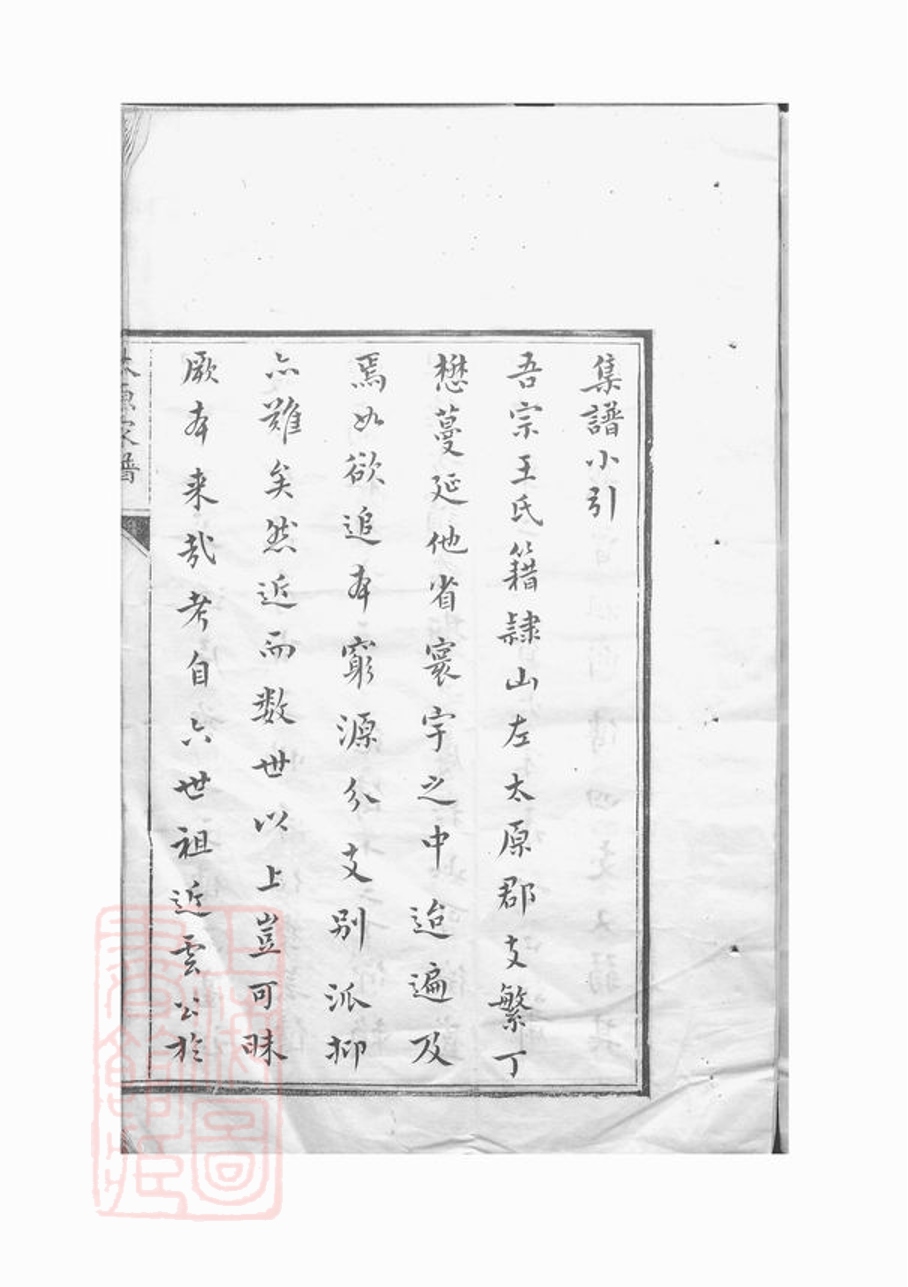 集譜小引
吾宗王氏籍隷山左太原郡支繁丁
懋蔓延他省寰宇之中迨遍及
焉如欲追本窮源分支別派抑
亦難矣然近而数世以上豈可昧
厥本来哉考自六世祖近雲公於
太原家譜